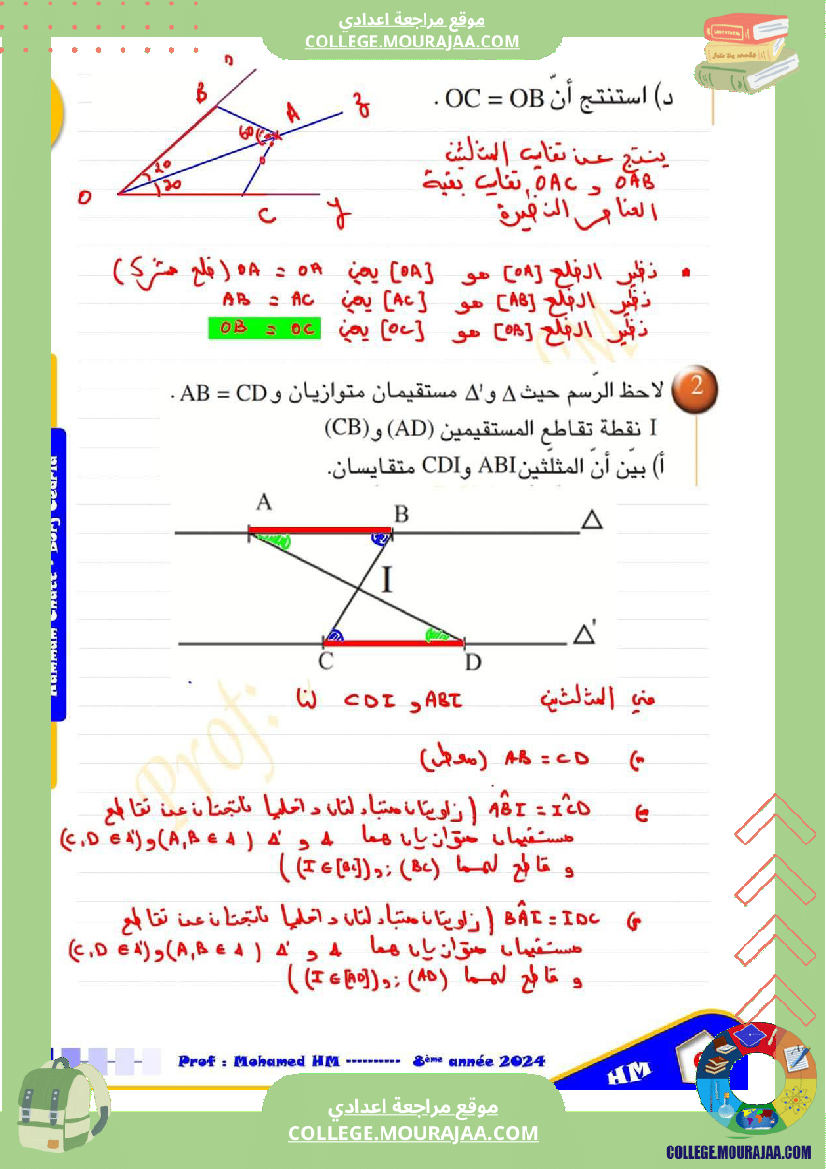 موقع مراجعة اعدادي
COLLEGE.MOURAJAA.COM
د) استنتج أنّ OC = OB .
B
A
z
60
20
20
O
C
y
ينتج عن تقايس المثلثين
OAB و OAC، تقايس بقية
العناصر النظيرة
• نظير الضلع [OA] هو [OA] يعني OA = OA (ضلع مشترك)
نظير الضلع [AB] هو [AC] يعني AB = AC
نظير الضلع [OB] هو [OC] يعني OB = OC
2
لاحظ الرّسم حيث Δ و Δ' مستقيمان متوازيان و AB = CD .
I نقطة تقاطع المستقيمين (AD) و (CB)
أ) بيّن أنّ المثلّثين ABI و CDI متقايسان.
A
B
Δ
I
C
D
Δ'
Prof:
في المثلثين ABI و CDI لنا
AB = CD (معطى)
AB̂I = IĈD (زاويتان متبادلتان داخليا ناتجتان عن تقاطع
مستقيمان متوازيان هما Δ و Δ' (A,B ∈ Δ) و (C,D ∈ Δ')
و قاطع لهما (BC) ; و (I ∈ [BC]))
BÂI = IDC (زاويتان متبادلتان داخليا ناتجتان عن تقاطع
مستقيمان متوازيان هما Δ و Δ' (A,B ∈ Δ) و (C,D ∈ Δ')
و قاطع لهما (AD) ; و (I ∈ [AD]))
Prof : Mohamed HM ---------- 8ème année 2024
HM
موقع مراجعة اعدادي
COLLEGE.MOURAJAA.COM
COLLEGE.MOURAJAA.COM